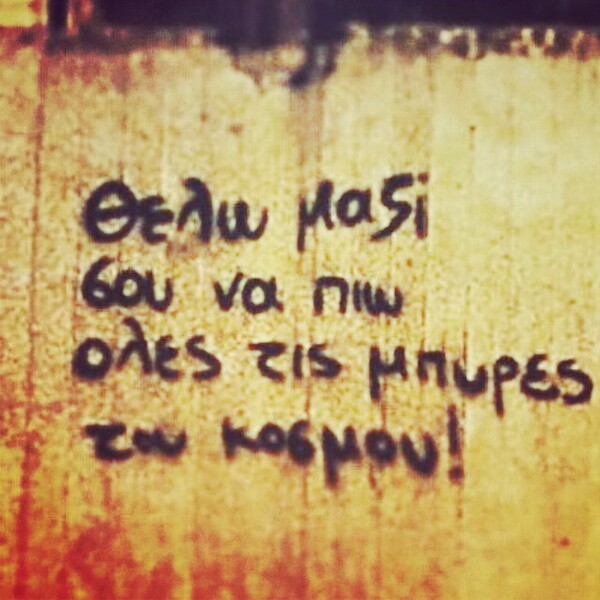 Θελω μαζi
σου να πιω
ολες τις μπυρες
του κοσμου!